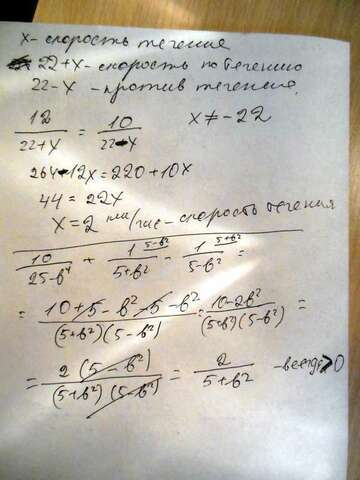 x - скорость течение
22+x - скорость по течению
22-x - против течения.
12/(22+x) = 10/(22-x) x ≠ -22
264-12x=220+10x
44=22x
x=2 км/час - скорость течения
10/(25-b⁴) + 1/(5+b²) - 1/(5-b²) =
= (10+5-b²-5-b²)/((5+b²)(5-b²)) = (10-2b²)/((5+b²)(5-b²)) =
= 2(5-b²)/((5+b²)(5-b²)) = 2/(5+b²) - всегда >0